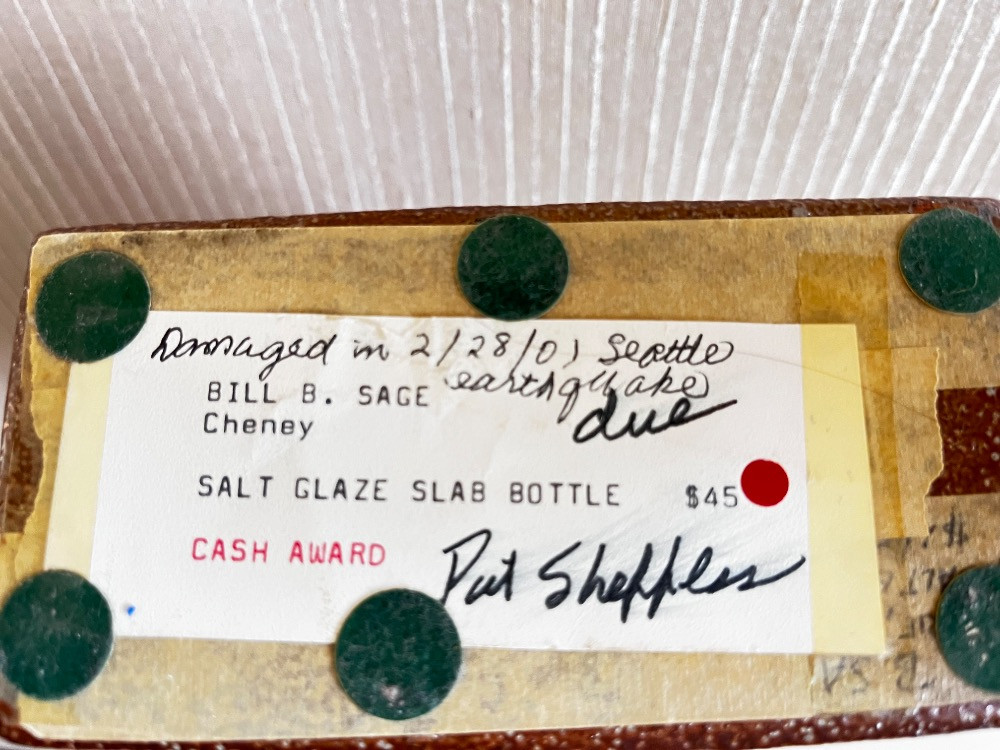 Damaged in 2/28/01 Seattle
earthquake
BILL B. SAGE
due
Cheney
SALT GLAZE SLAB BOTTLE $45
CASH AWARD
Pat